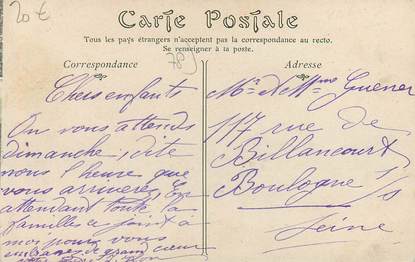 20 €
Carte Postale
Tous les pays étrangers n'acceptent pas la correspondance au recto.
Se renseigner à la poste.
Correspondance
Adresse
78
Chers enfants
On vous attends
dimanche, dite
nous l'heure que
vous arriverez, En
attendant toute la
familles ce joint à
moi pour vous
embrasser de grand cœur
Mr &
117 rue de
Billancourt
Boulogne s/s
Seine